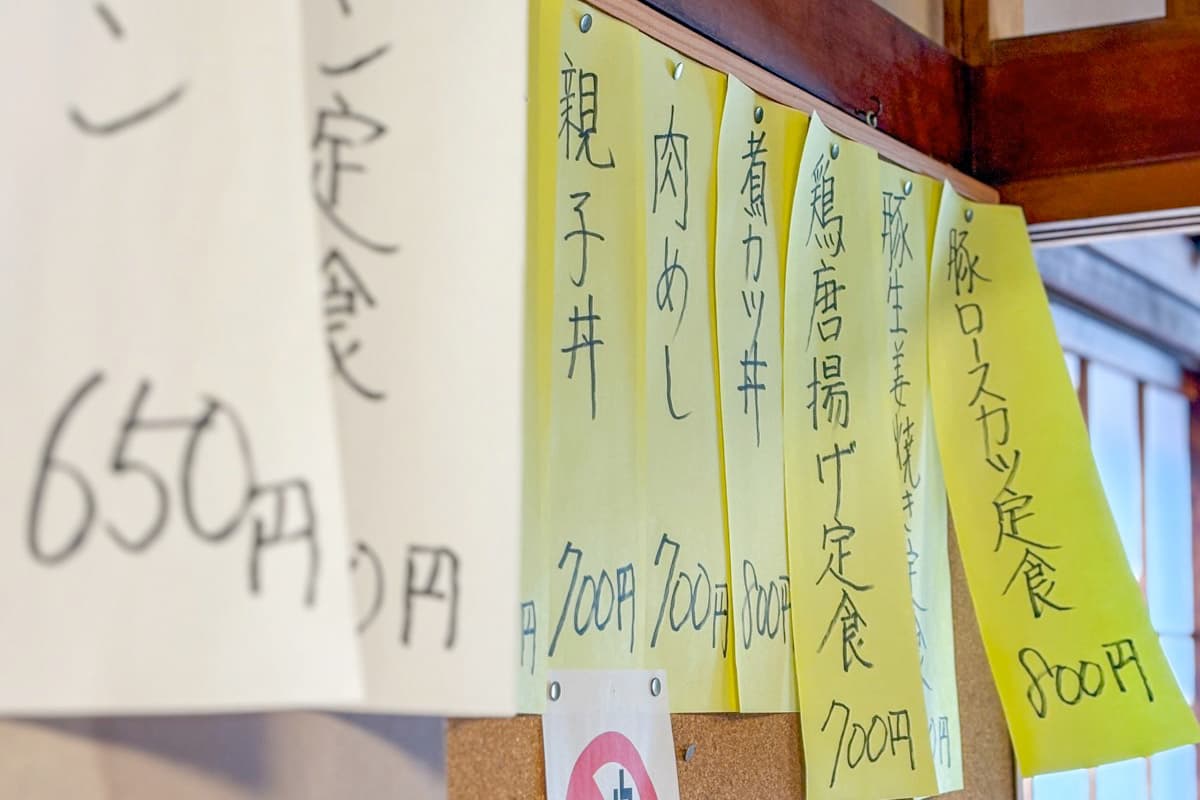 ン
650円
ン定食
0円
円
親子丼
700円
肉めし
700円
煮カツ丼
800円
鶏唐揚げ定食
700円
豚生姜焼き定食
0円
豚ロースカツ定食
800円